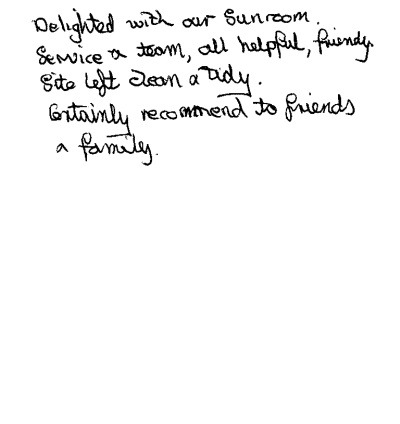 Delighted with our Sunroom.
Service & team, all helpful, friendly.
Site left clean & tidy.
Certainly recommend to friends
& family.